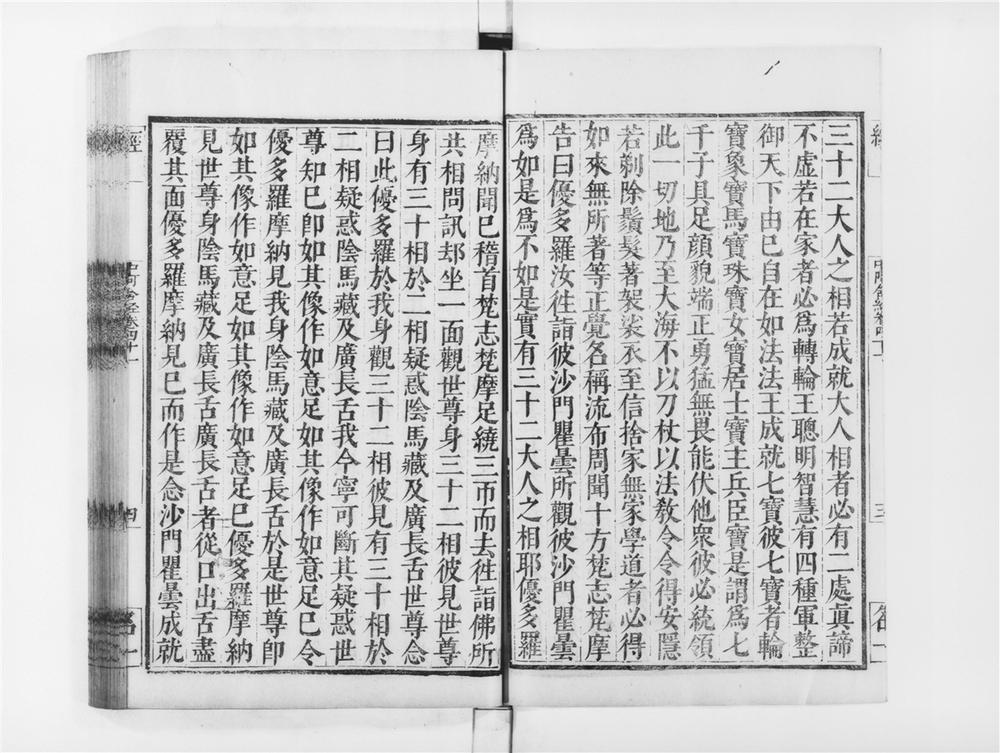 三十二大人之相若成就大人相者必有二處眞諦
不虛若在家者必爲轉輪王聰明智慧有四種軍整
御天下由已自在如法法王成就七寶彼七寶者輪
寶象寶馬寶珠寶女寶居士寶主兵臣寶是謂爲七
千子具足顏貌端正勇猛無畏能伏他衆彼必統領
此一切地乃至大海不以刀杖以法教令令得安隱
若剃除鬚髮著袈裟衣至信捨家無家學道者必得
如來無所著等正覺名稱流布周聞十方梵志梵摩
告曰優多羅汝往詣彼沙門瞿曇所觀彼沙門瞿曇
爲如是爲不如是實有三十二大人之相耶優多羅
摩納聞已稽首梵志梵摩足繞三帀而去往詣佛所
共相問訊却坐一面觀世尊身三十二相彼見世尊
身有三十相於二相疑惑陰馬藏及廣長舌世尊念
曰此優多羅於我身觀三十二相彼見有三十相於
二相疑惑陰馬藏及廣長舌我今寧可斷其疑惑世
尊知已卽如其像作如意足如其像作如意足已令
優多羅摩納見我身陰馬藏及廣長舌於是世尊卽
如其像作如意足如其像作如意足已優多羅摩納
見世尊身陰馬藏及廣長舌廣長舌者從口出舌盡
覆其面優多羅摩納見已而作是念沙門瞿曇成就
經
中阿含經卷四十一
四